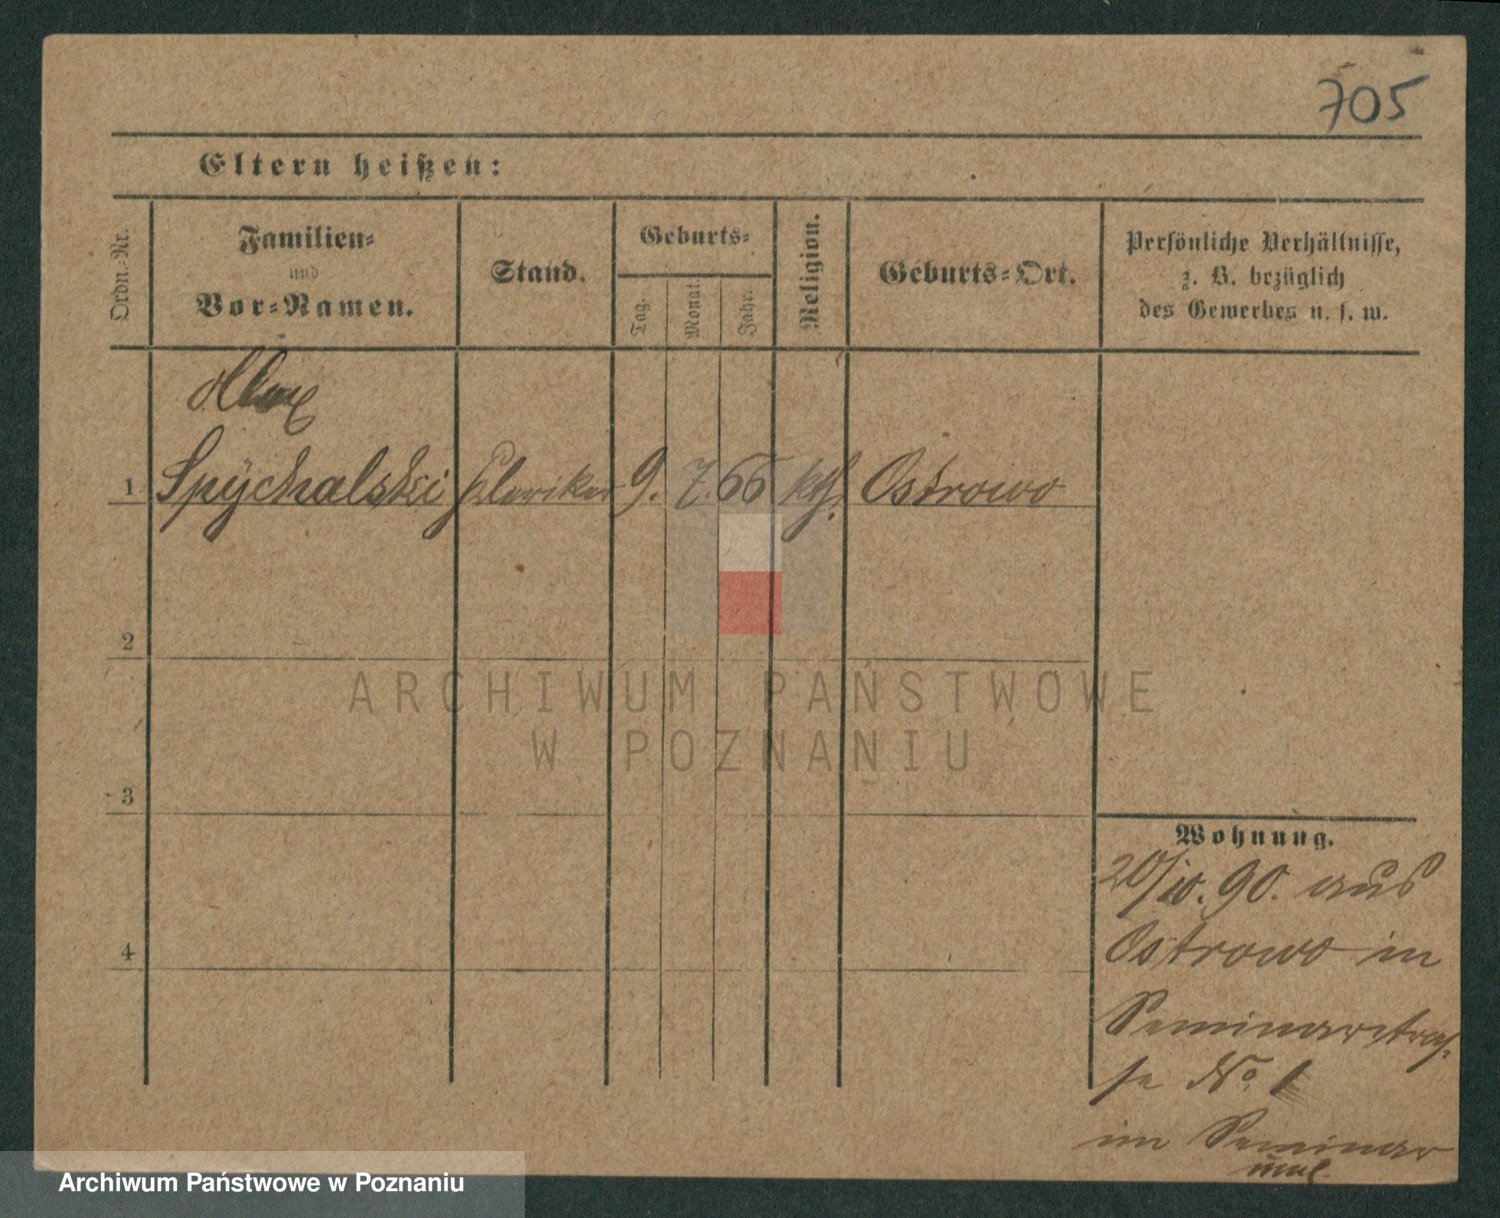 705
Eltern heißen:
Ordn.-Nr.
Familien-
und
Vor-Namen.
Stand.
Geburts-
Tag.
Monat.
Jahr.
Religion.
Geburts-Ort.
Persönliche Verhältnisse,
z. B. bezüglich
des Gewerbes u. s. w.
Max
1 Spychalski Kleriker 9. 7. 66 kth. Ostrowo
2
3
4
Wohnung.
20/10. 90. aus
Ostrowo in
Seminarstras-
se No. 1
im Seminar
ARCHIWUM PAŃSTWOWE
W POZNANIU
Archiwum Państwowe w Poznaniu